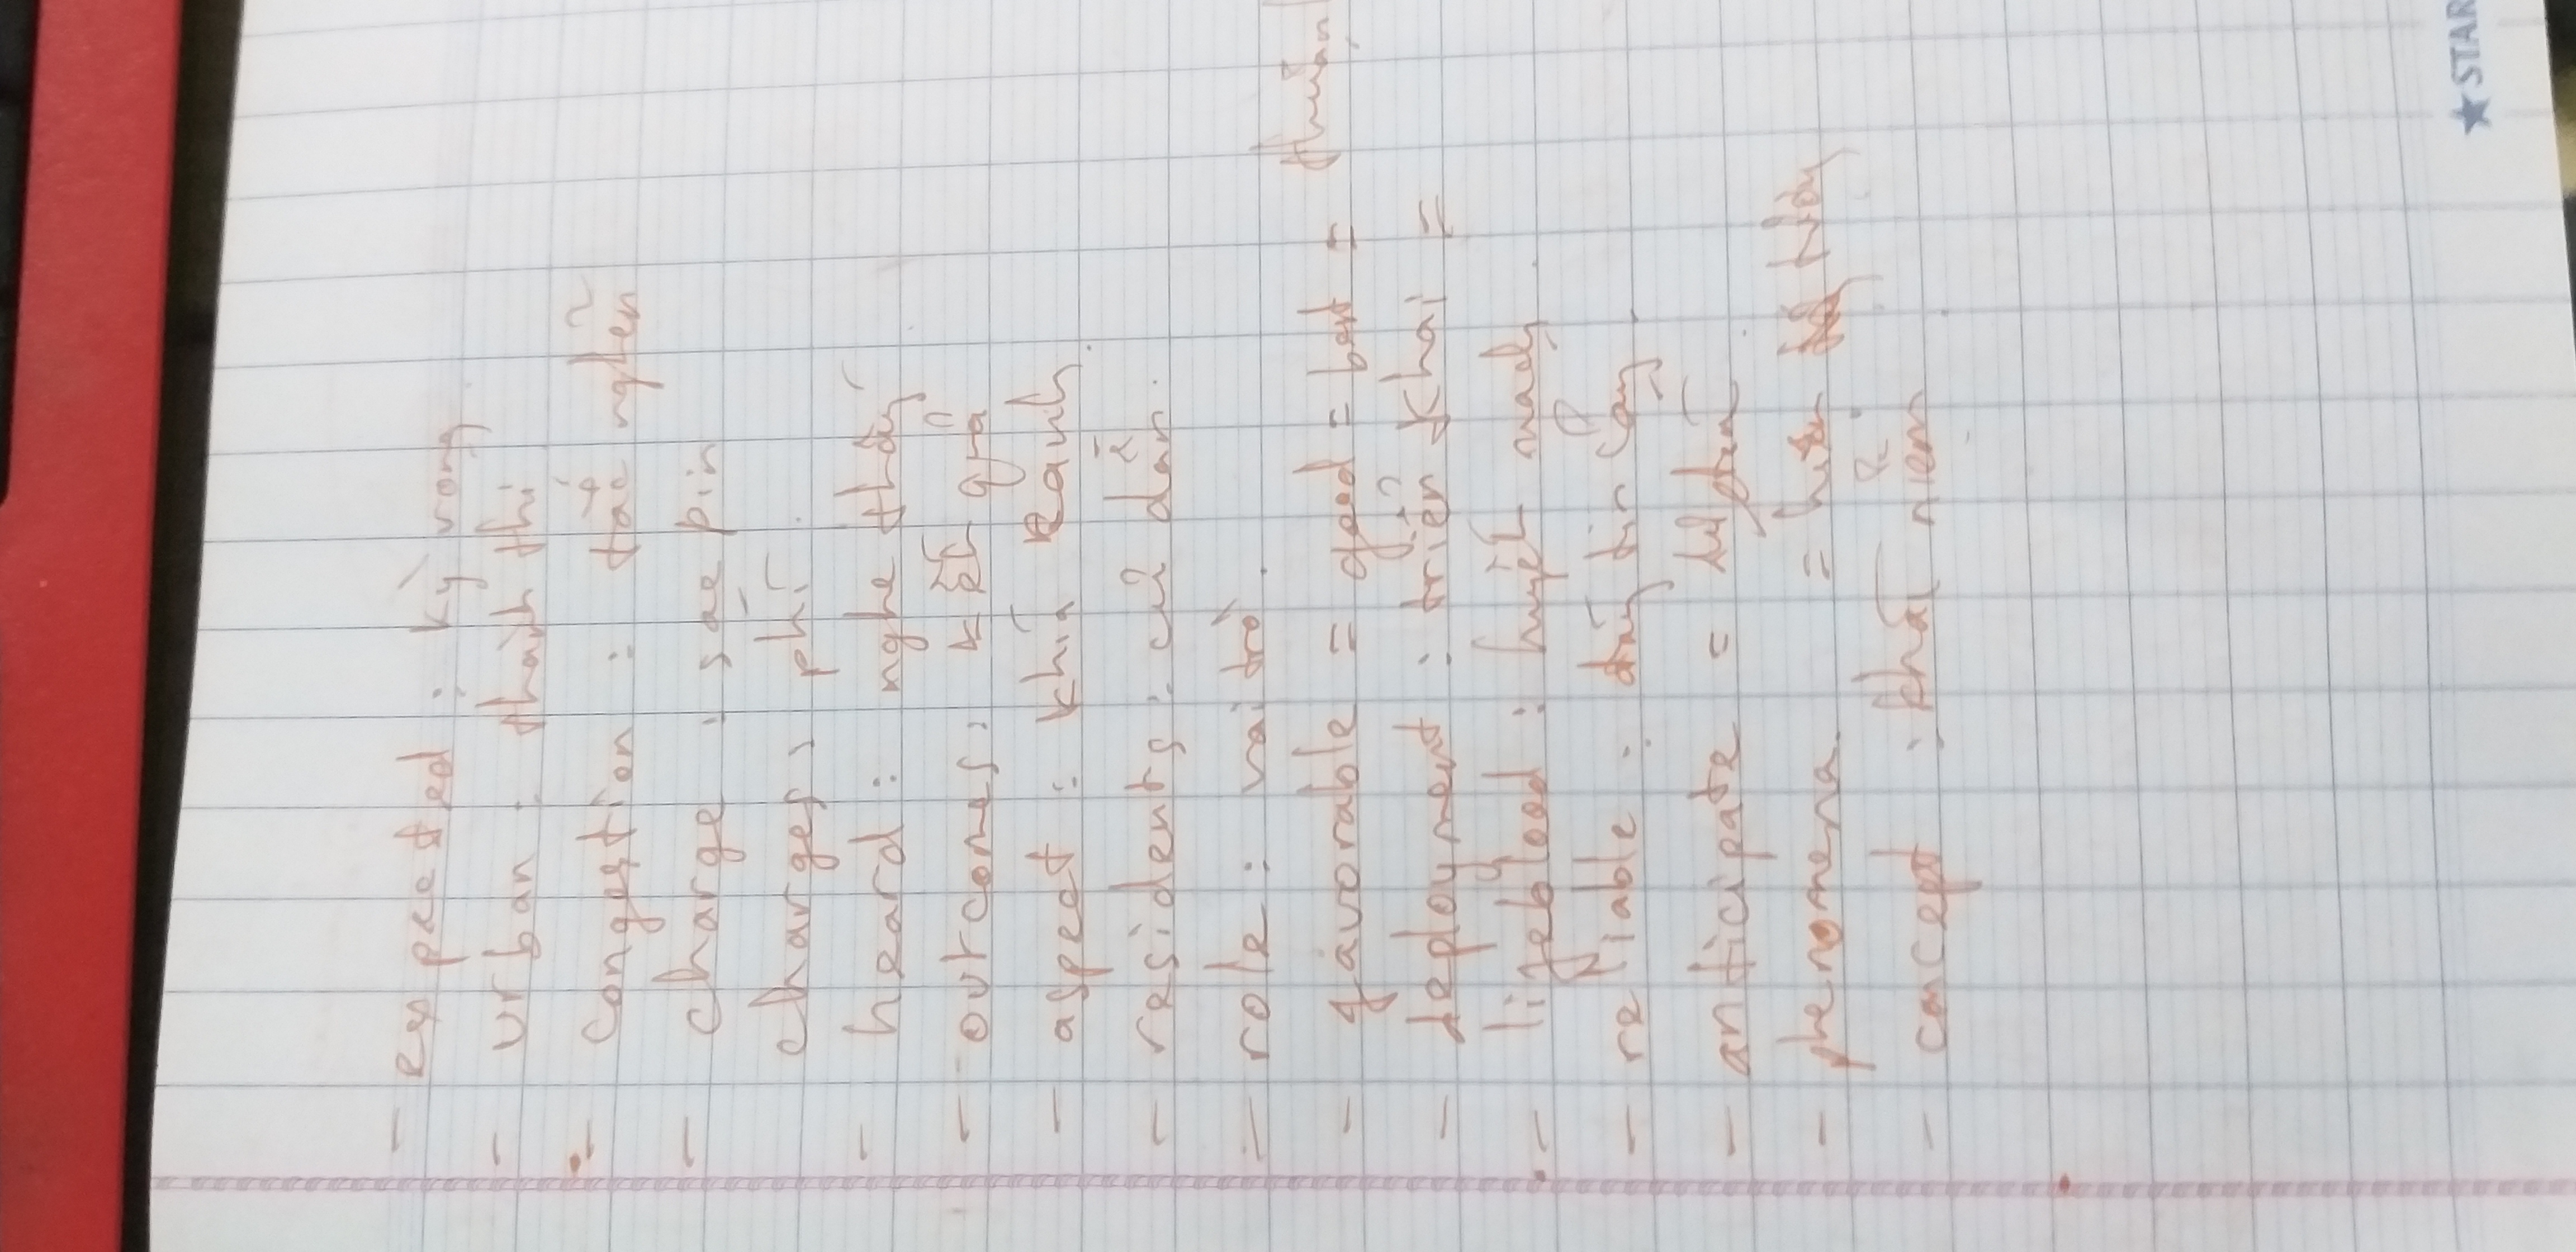 - expected : kỳ vọng
- urban : thành thị
- congestion : tắc nghẽn
- charge : sạc pin
charges : phí.
- heard : nghe thấy
- outcomes : kết quả
- aspect : khía cạnh
- residents : cư dân.
- role : vai trò.
- favorable = good = best = thuận
- deployment : triển khai =
- lifeblood : huyết mạch
- reliable : đáng tin cậy
- anticipate =
- phenomena =
- concept : khái niệm
★ STAR